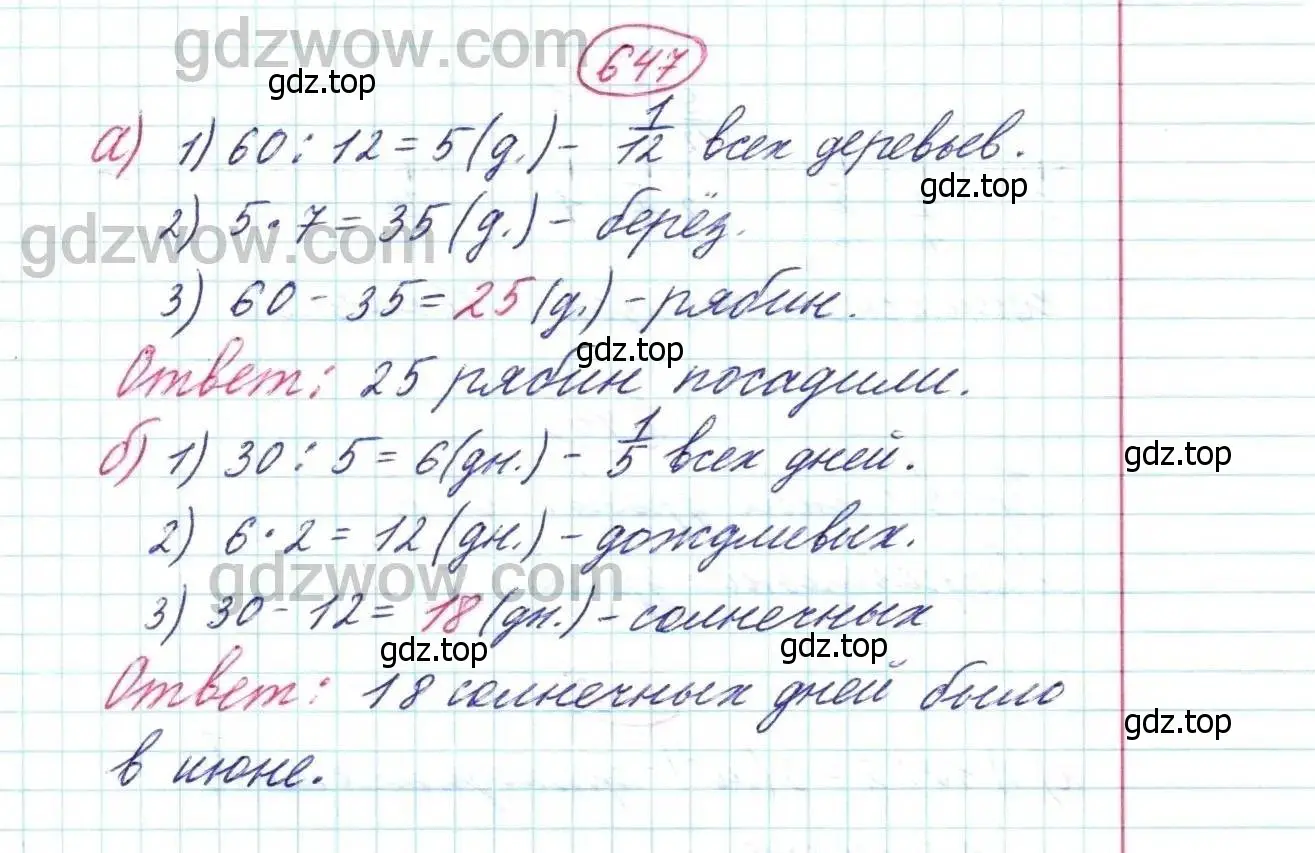 gdzwow.com
647
gdz.top
а) 1) 60 : 12 = 5 (д.) - 1/12 всех деревьев.
gdz.top
2) 5 · 7 = 35 (д.) - берёз.
gdzwow.com
3) 60 - 35 = 25 (д.) - рябин.
gdz.top
Ответ: 25 рябин посадили.
б) 1) 30 : 5 = 6 (дн.) - 1/5 всех дней.
gdz.top
2) 6 · 2 = 12 (дн.) - дождливых.
gdzwow.com
3) 30 - 12 = 18 (дн.) - солнечных
gdz.top gdz.top
Ответ: 18 солнечных дней было
gdz.top
в июне.